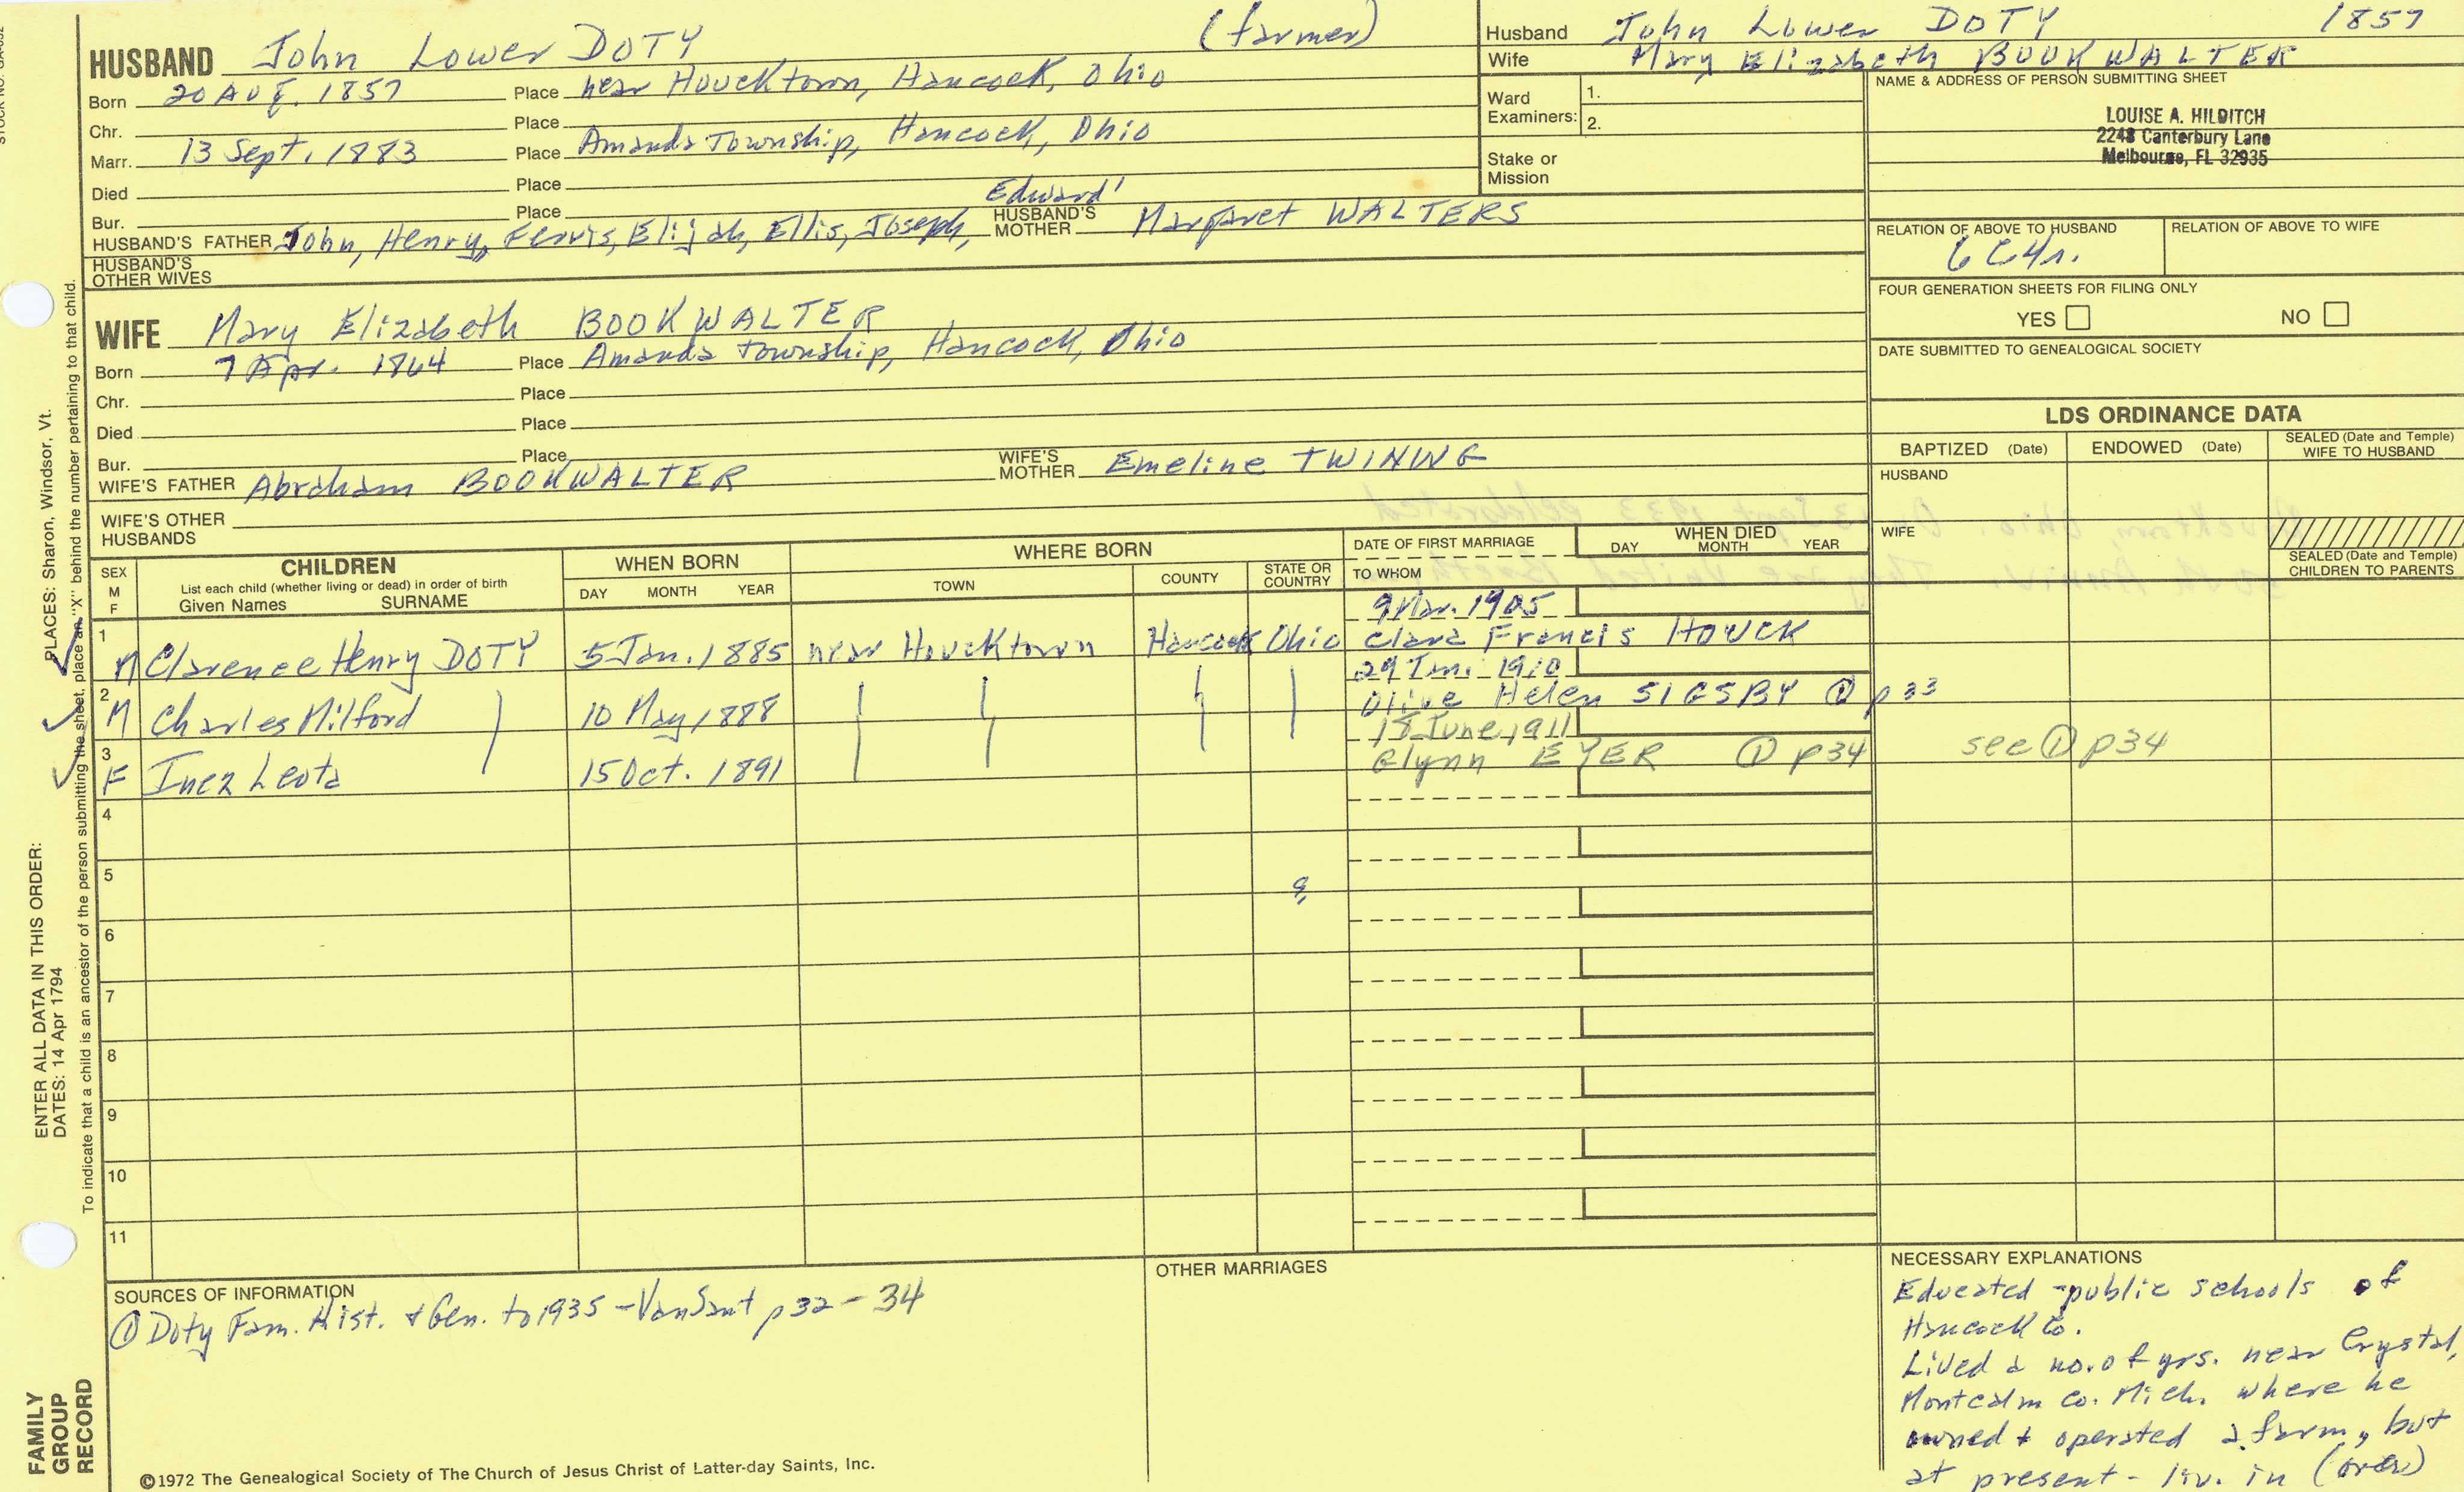 HUSBAND John Lower DOTY (farmer)
Born 20 Aug. 1857 Place near Houcktown, Hancock, Ohio
Chr. Place
Marr. 13 Sept. 1883 Place Amanda Township, Hancock, Ohio
Died Place
Bur. Place
HUSBAND'S FATHER John, Henry, Fervis, Elijah, Ellis, Joseph, Edward' HUSBAND'S MOTHER Margaret WALTERS
HUSBAND'S OTHER WIVES
WIFE Mary Elizabeth BOOKWALTER
Born 7 Apr. 1864 Place Amanda Township, Hancock, Ohio
Chr. Place
Died Place
Bur. Place
WIFE'S FATHER Abraham BOOKWALTER WIFE'S MOTHER Emeline TWINING
WIFE'S OTHER HUSBANDS
Husband John Lower DOTY 1857
Wife Mary Elizabeth BOOKWALTER
Ward Examiners: 1.
2.
Stake or Mission
NAME & ADDRESS OF PERSON SUBMITTING SHEET
LOUISE A. HILDITCH
2248 Canterbury Lane
Melbourne, FL 32935
RELATION OF ABOVE TO HUSBAND RELATION OF ABOVE TO WIFE
6C4r.
FOUR GENERATION SHEETS FOR FILING ONLY
YES NO
DATE SUBMITTED TO GENEALOGICAL SOCIETY
LDS ORDINANCE DATA
BAPTIZED (Date) ENDOWED (Date) SEALED (Date and Temple) WIFE TO HUSBAND
HUSBAND
WIFE
SEALED (Date and Temple) CHILDREN TO PARENTS
SEX M F CHILDREN List each child (whether living or dead) in order of birth Given Names SURNAME WHEN BORN DAY MONTH YEAR WHERE BORN TOWN COUNTY STATE OR COUNTRY DATE OF FIRST MARRIAGE TO WHOM WHEN DIED DAY MONTH YEAR
9 Mar. 1905
1 M Clarence Henry DOTY 5 Jan. 1885 near Houcktown Hancock Ohio Clara Francis HOUCK
29 Jan. 1910
2 M Charles Milford 10 May, 1888 Olive Helen SIGSBY ① p33
18 June, 1911
3 F Inez Leota 15 Oct. 1891 Glynn EYER ① p34 see ① p34
4
5
6
7
8
9
10
11
SOURCES OF INFORMATION
① Doty Fam. Hist. & Gen. to 1935 - VanSant p32-34
OTHER MARRIAGES
NECESSARY EXPLANATIONS
Educated - public schools of
Hancock Co.
Lived a no. of yrs. near Crystal,
Montcalm Co. Mich. where he
owned & operated a farm, but
at present - liv. in (over)
©1972 The Genealogical Society of The Church of Jesus Christ of Latter-day Saints, Inc.
FAMILY GROUP RECORD
ENTER ALL DATA IN THIS ORDER:
DATES: 14 Apr 1794
PLACES: Sharon, Windsor, Vt.
To indicate that a child is an ancestor of the person submitting the sheet, place an "X" behind the number pertaining to that child.